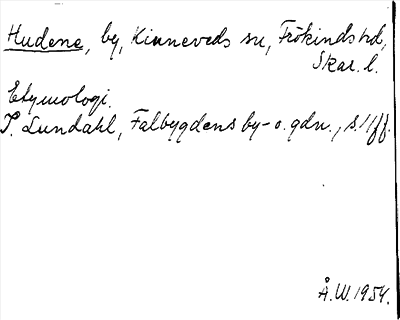 Hudene, by, Kinneveds sn, Frökinds hd,
Skar. l.
Etymologi.
I. Lundahl, Falbygdens by- o. gdn., s. 1 ff.
Å.W. 1954.